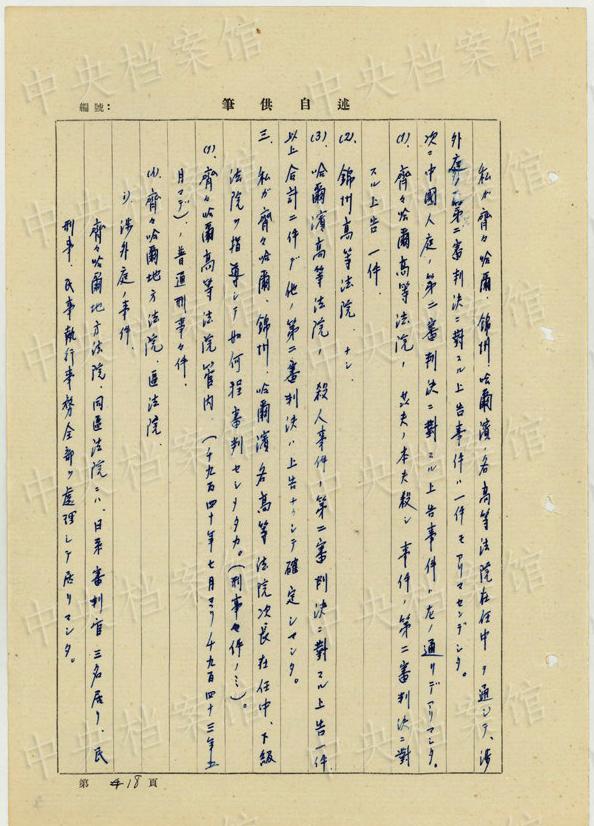 編號：
筆供自述
私ガ齊々哈爾、錦州、哈爾濱、各高等法院在任中ヲ通シテ、渉
外庭ノ第二審判決ニ對スル上告事件ハ一件モアリマセンデシタ。
次ニ中國人庭ノ第二審判決ニ對スル上告事件ハ左ノ通リデアリマシタ。
(1)、齊々哈爾高等法院、姦夫ノ本夫殺シ事件ノ第二審判決ニ對
スル上告一件。
(2)、錦州高等法院、ナシ、
(3)、哈爾濱高等法院、殺人事件ノ第二審判決ニ對スル上告一件
以上合計二件デ他ノ第二審判決ハ上告ナクシテ確定シマシタ。
三、私ガ齊々哈爾、錦州、哈爾濱各高等法院次長在任中、下級
法院ヲ指導シテ如何程審判セシメタカ。(刑事々件ノミ)。
(1)、齊々哈爾高等法院管内(一千九百四十年七月ヨリ一千九百四十三年五
月マデ)、普通刑事々件、
(イ)、齊々哈爾地方法院、區法院、
i)、渉外庭ノ事件、
齊々哈爾地方法院、同區法院ニハ、日系審判官三名居リ、民
刑事、民事執行事務全部ヲ處理シテ居リマシタ。
第 418 頁
中央档案馆